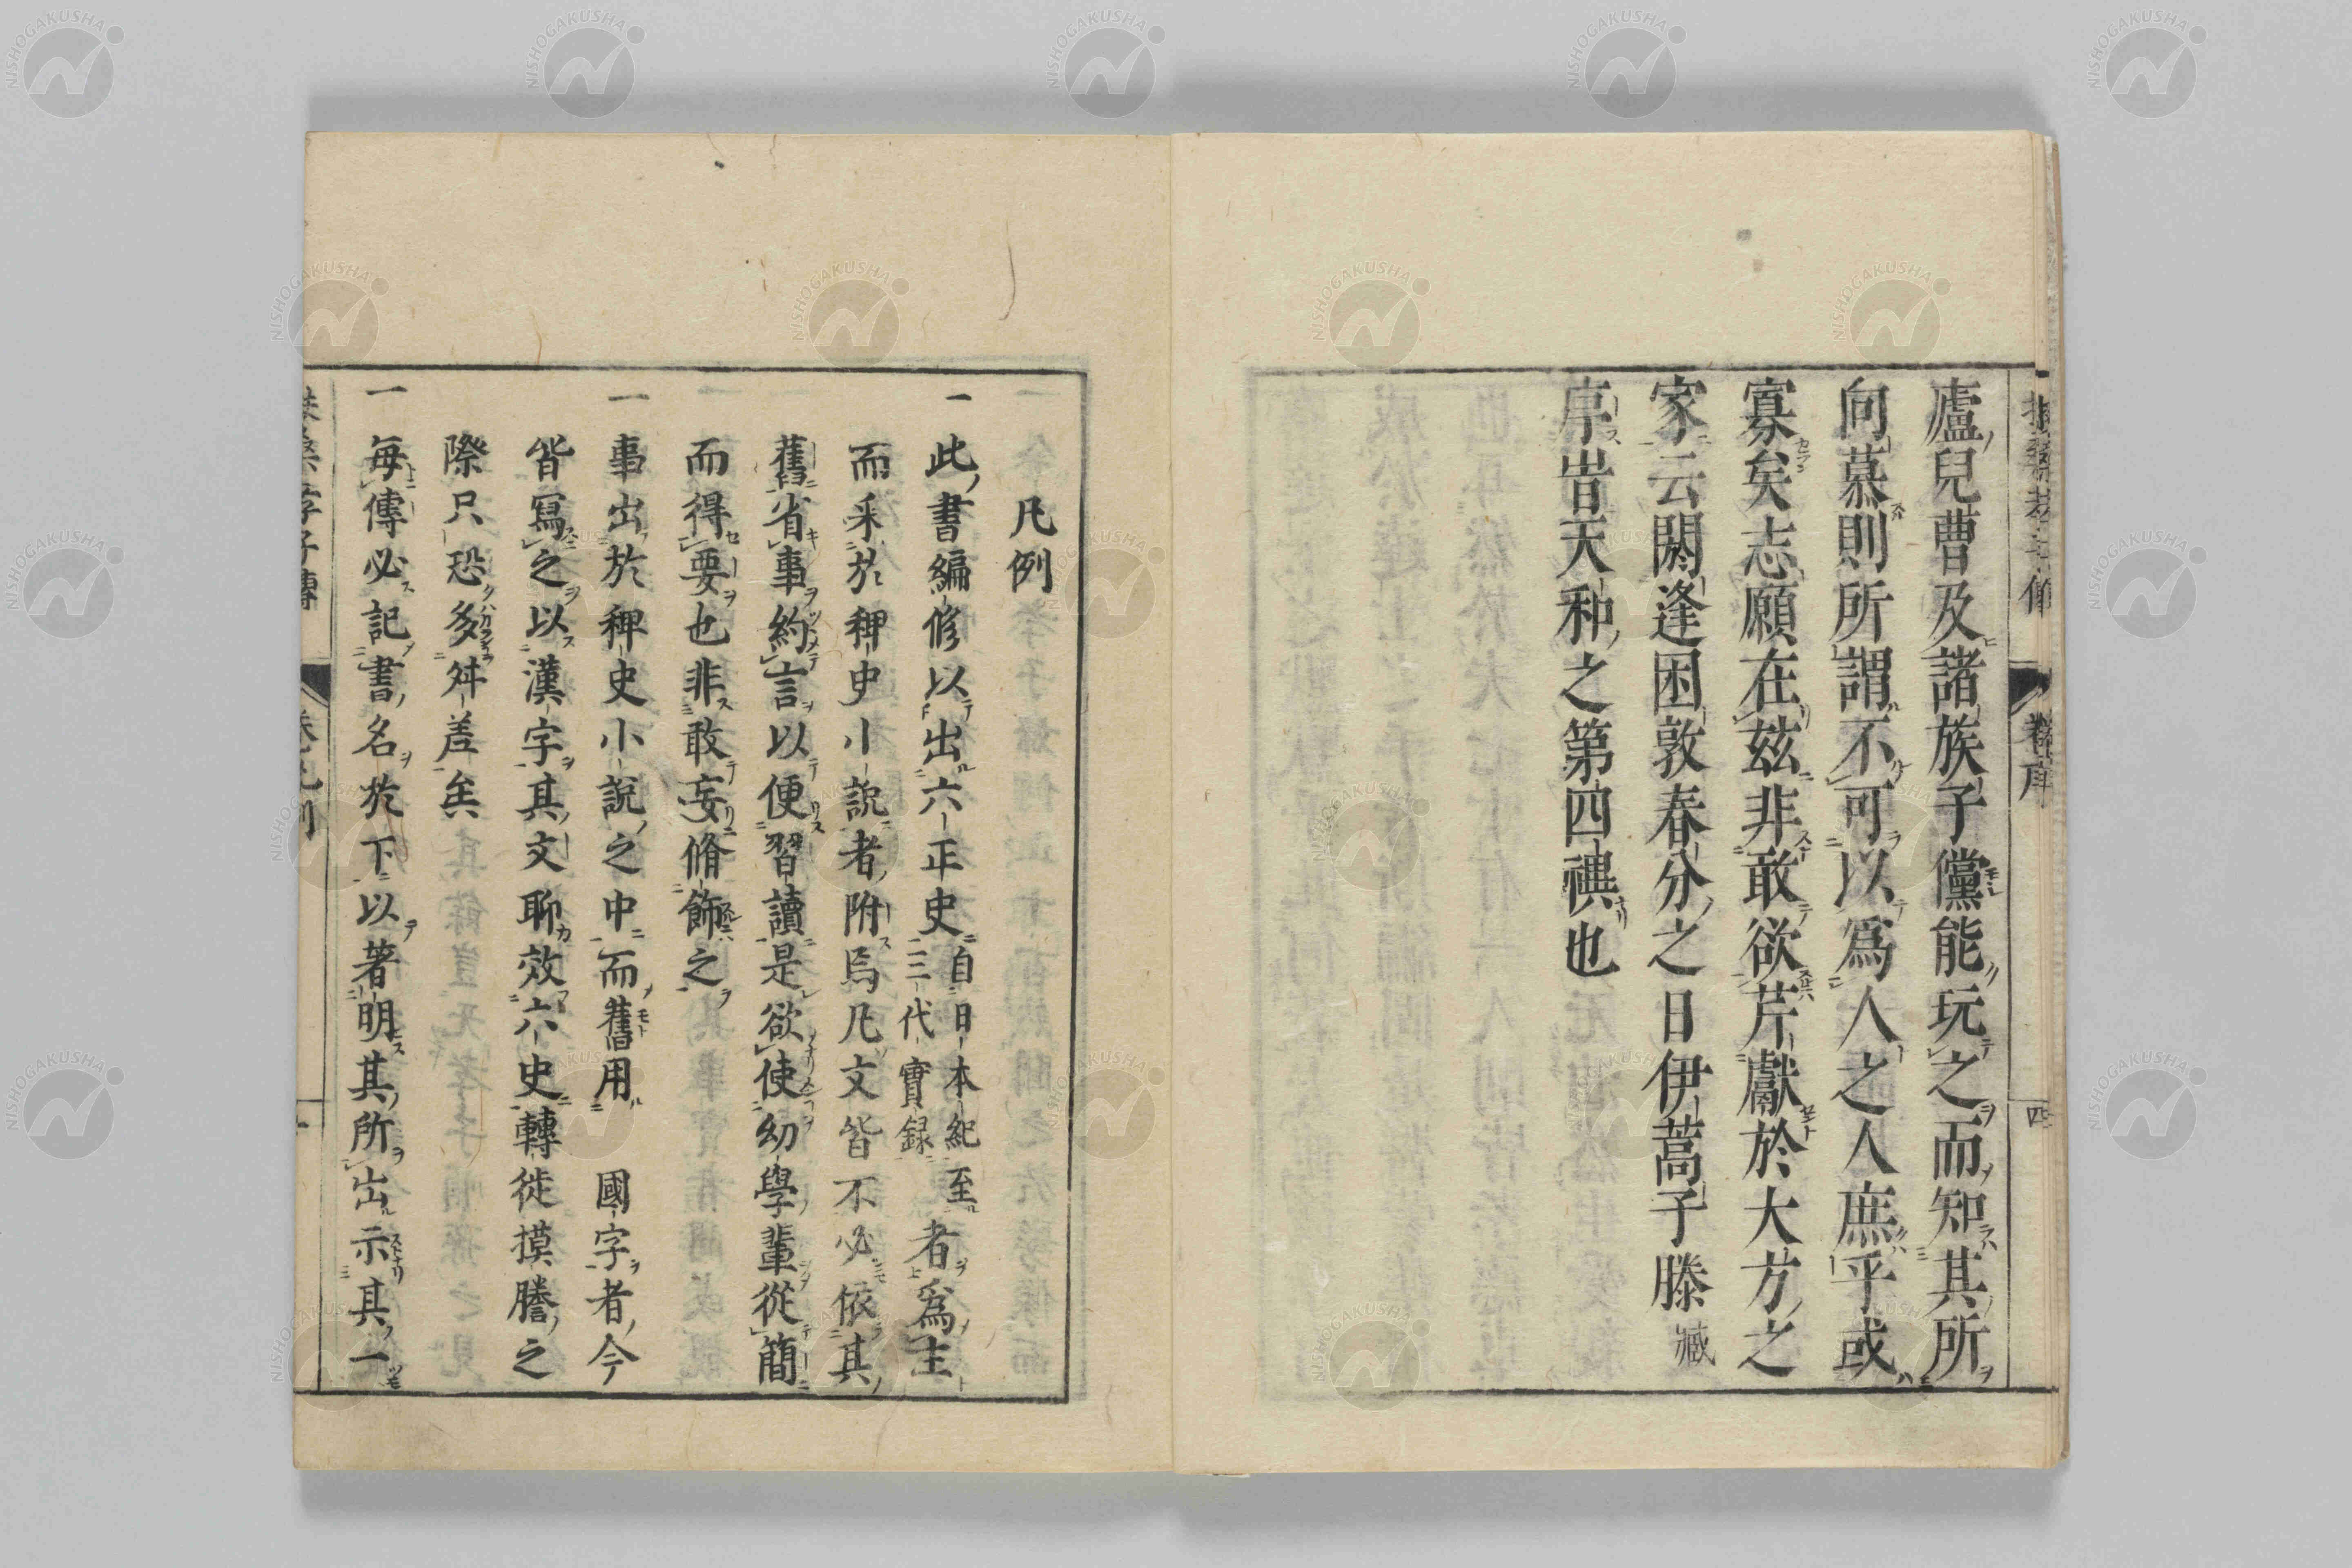 廬兒曹及諸族子儻能玩之而知其所
向慕則所謂不可以爲人之人庶乎或
寡矣志願在茲非敢欲芹獻於大方之
家云閼逢困敦春分之日伊蒿子滕臧
序旹天和之第四禩也
四
凡例
一此書編修以出六正史自日本紀至三代實録者爲主
而采於稗史小説者附焉凡文皆不必依其
舊省事約言以便習讀是欲使幼學輩從簡
而得要也非敢妄脩飾之
一事出於稗史小説之中而舊用國字者今
皆寫之以漢字其文聊效六史轉徙摸謄之
際只恐多舛差矣
一毎傳必記書名於下以著明其所出示其一
孝子傳
NISHOGAKUSHA